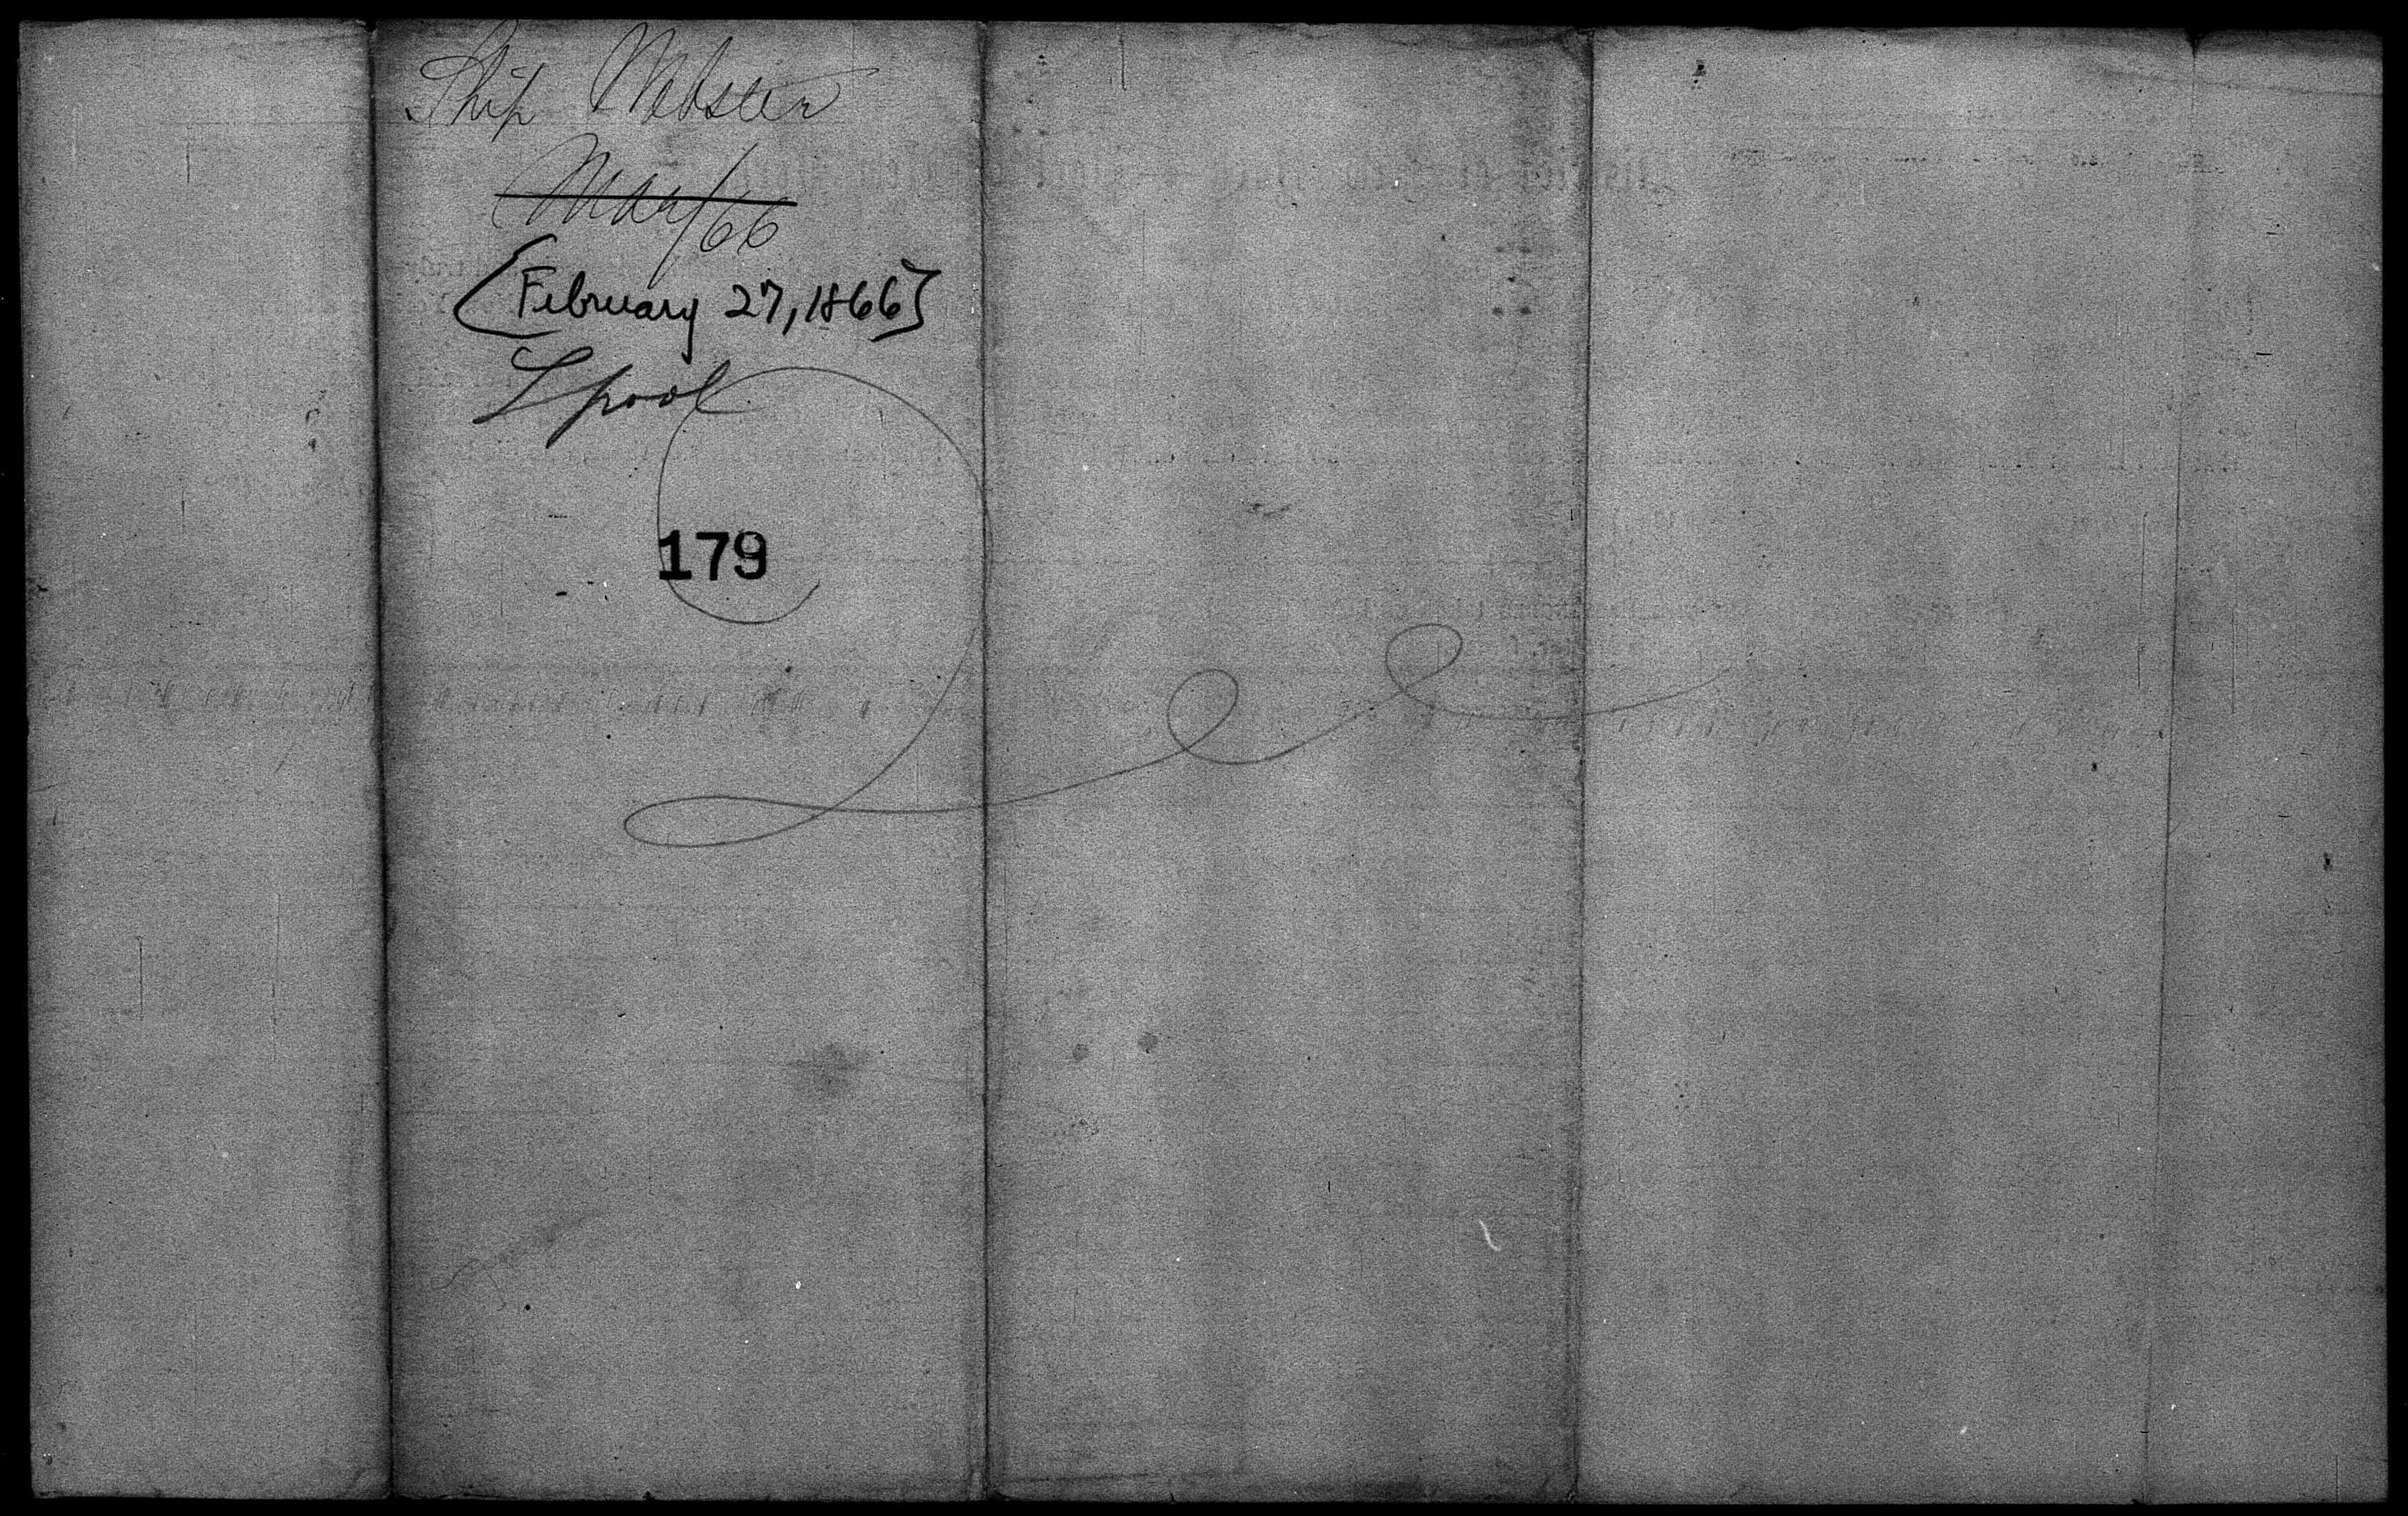 Ship Webster
Mar/66
[February 27, 1866]
L pool
179